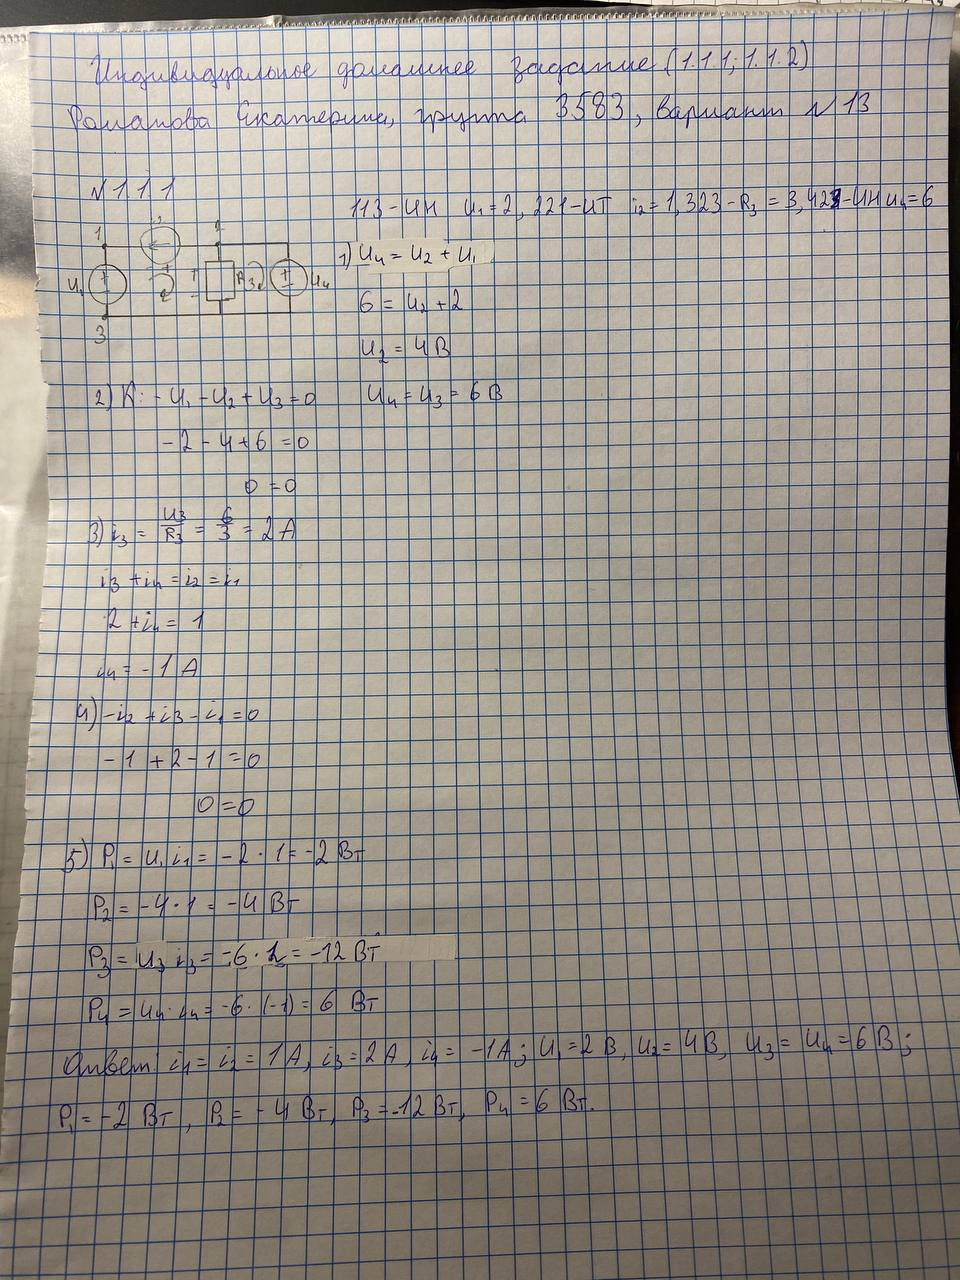 Индивидуальное домашнее задание (1.1.1; 1.1.2)
Романова Екатерина, группа 3583, Вариант №13
№ 1.1.1
113-ИН U₁=2, 221-ИТ i₂=1, 323-R₃=3, 421-ИН U₄=6
1 2
U₁ R₃ U₄
3
1) U₄ = U₂ + U₁
6 = U₂ + 2
U₂ = 4 В
U₄ = U₃ = 6 В
2) К: -U₁ - U₂ + U₃ = 0
-2 - 4 + 6 = 0
0 = 0
3) i₃ = U₃/R₃ = 6/3 = 2 А
i₃ + i₄ = i₂ = i₁
2 + i₄ = 1
i₄ = -1 А
4) -i₂ + i₃ - i₁ = 0
-1 + 2 - 1 = 0
0 = 0
5) P₁ = U₁ i₁ = -2 · 1 = -2 Вт
P₂ = -4 · 1 = -4 Вт
P₃ = U₃ i₃ = -6 · 2 = -12 Вт
P₄ = U₄ · i₄ = -6 · (-1) = 6 Вт
Ответ: i₁ = i₂ = 1 А, i₃ = 2 А, i₄ = -1 А; U₁ = 2 В, U₂ = 4 В, U₃ = U₄ = 6 В;
P₁ = -2 Вт, P₂ = -4 Вт, P₃ = -12 Вт, P₄ = 6 Вт.